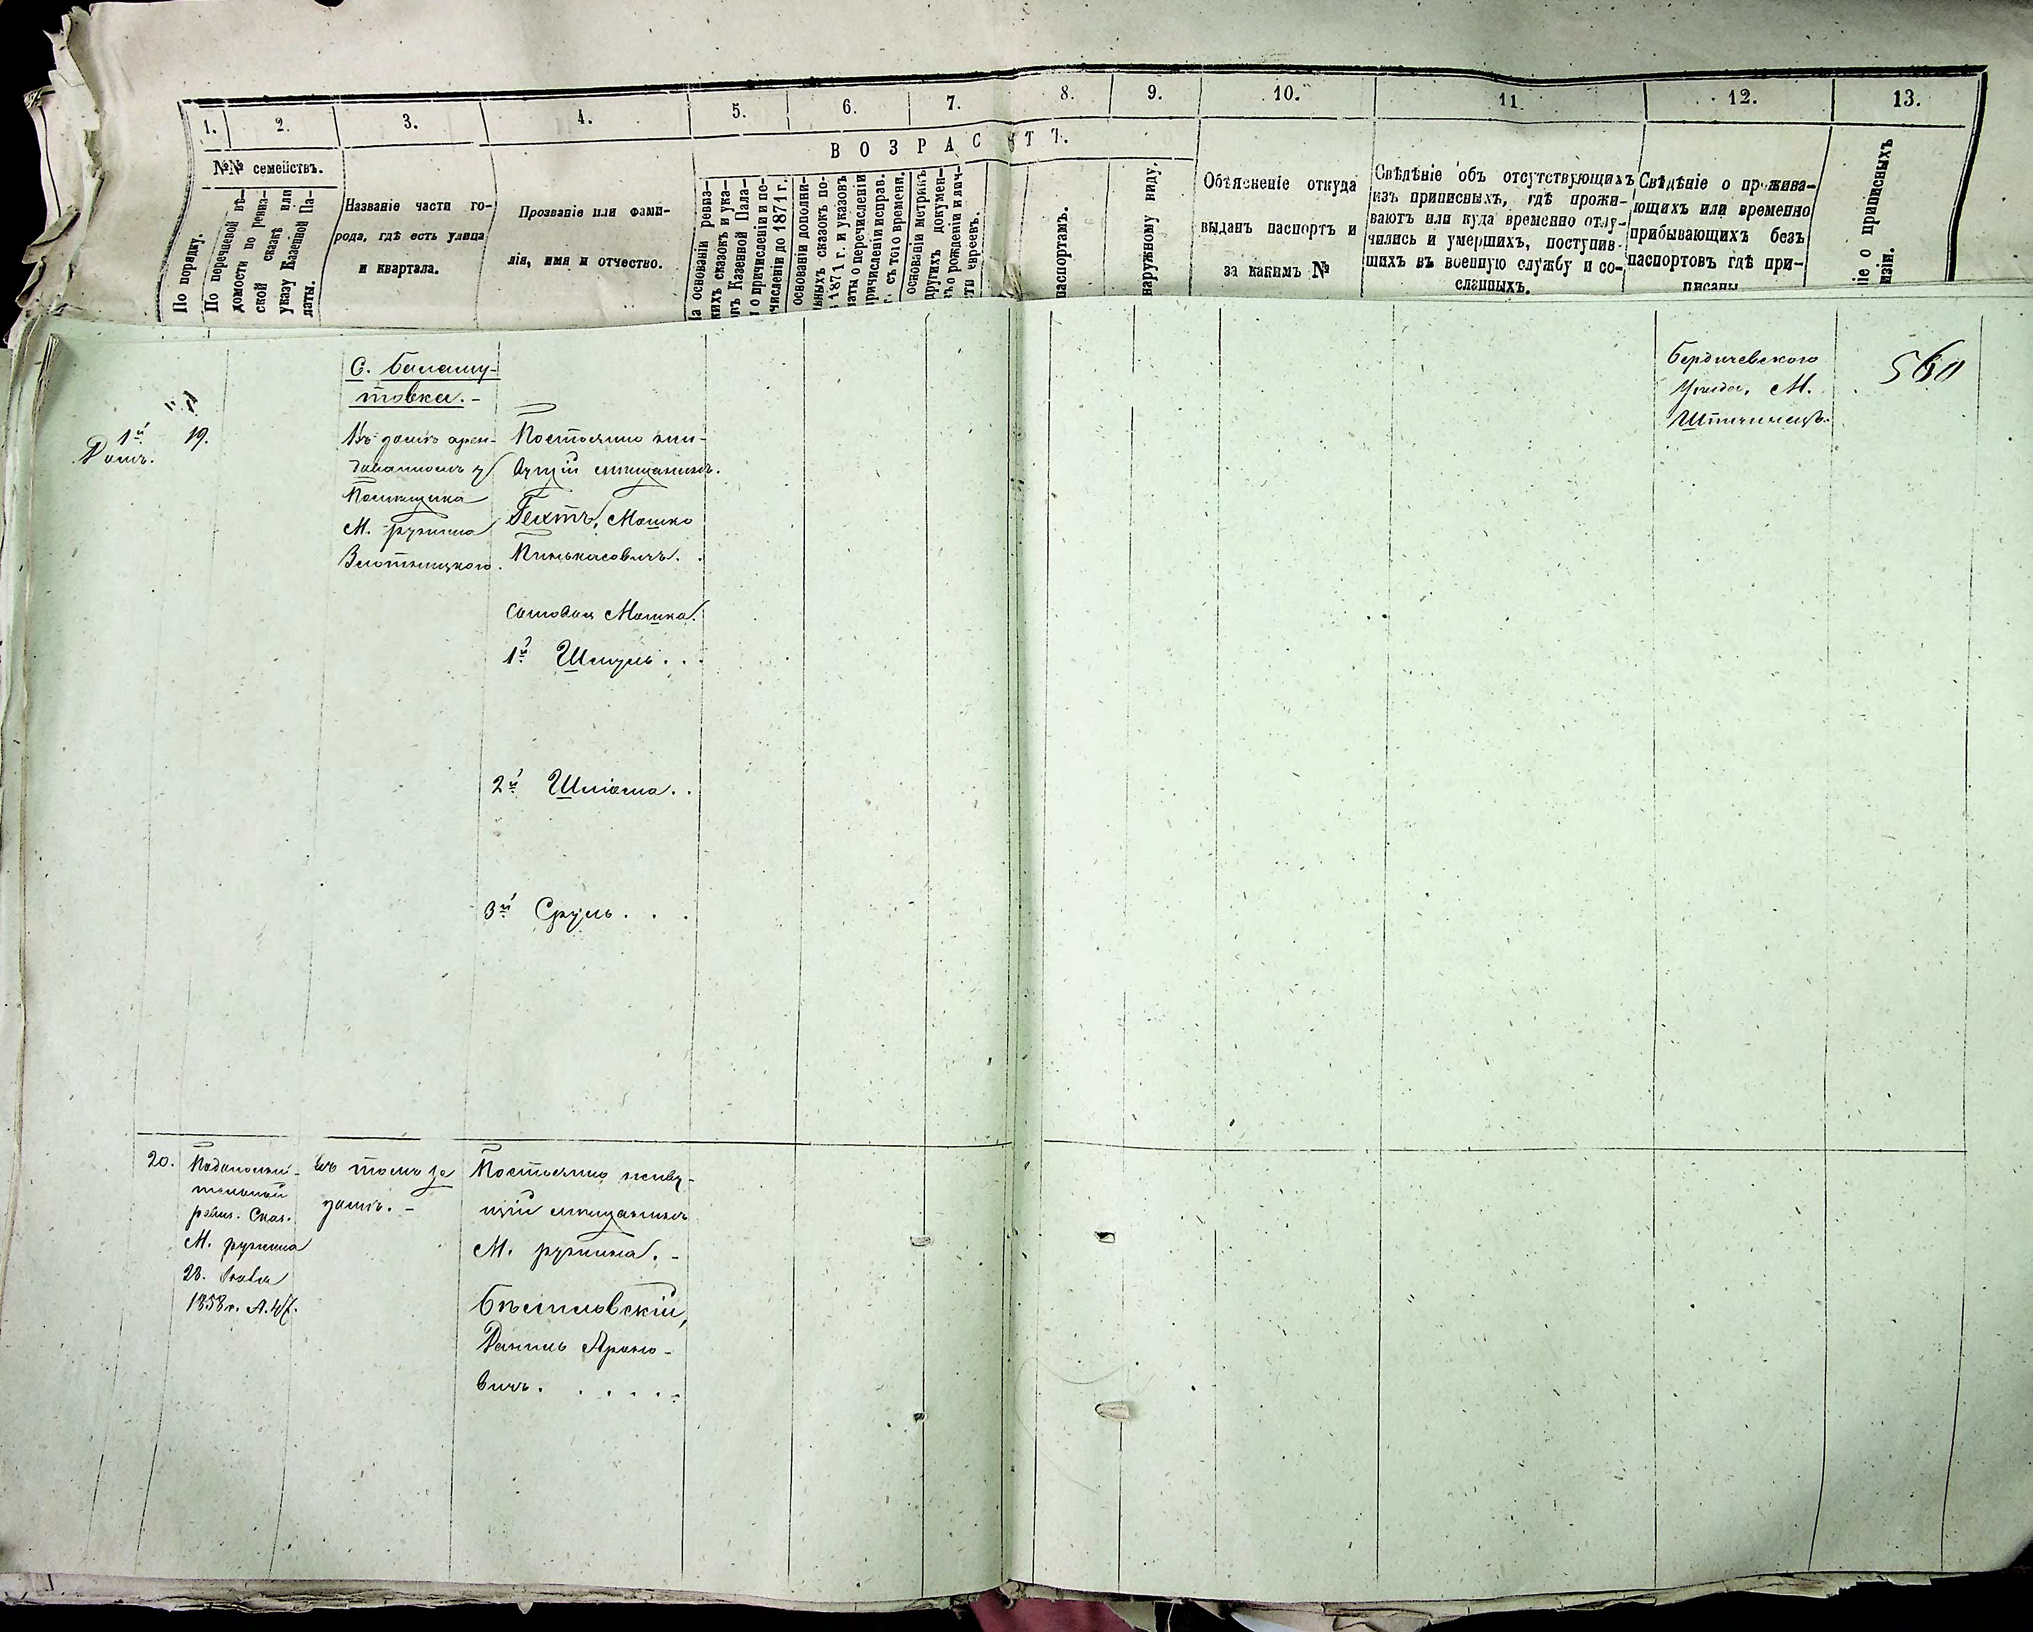 1. 2. 3. 4. 5. 6. 7. 8. 9. 10. 11. 12. 13.
ВОЗРАСТЪ.
№№ семействъ.
По порядку.
По перечневой вѣ-
домости по ревиз-
ской сказкѣ или
указу Казенной Па-
латы.
Названіе части го-
рода, гдѣ есть улица
и квартала.
Прозваніе или фами-
лія, имя и отчество.
На основаніи ревиз-
скихъ сказокъ и ука-
зовъ Казенной Пала-
ты о причисленіи и пе-
речисленіи до 1871 г.
основаніи дополни-
тельныхъ сказокъ по-
1871 г. и указовъ
латы о перечисленіи
причисленіи исправ.
съ того времени.
основаніи метрикъ
другихъ докумен-
о рожденіи и лич-
сти евреевъ.
паспортамъ.
наружному виду.
Объясненіе откуда
выданъ паспортъ и
за какимъ №
Свѣдѣніе объ отсутствующихъ
изъ приписныхъ, гдѣ прожи-
ваютъ или куда временно отлу-
чились и умершихъ, поступив-
шихъ въ военную службу и со-
сланныхъ.
Свѣдѣніе о прожива-
ющихъ или временно
прибывающихъ безъ
паспортовъ гдѣ при-
писаны
ніе о приписныхъ
визіи.
С. Балашу-
товка.-
1й
Домъ.
19.
Въ домѣ арен-
дованномъ у
Помѣщика
М. Ружина
Злотницкого.
Постоянно жи-
вущій мѣщанинъ.
Гехтъ, Мошко
Пинькасовичъ.
Сыновья Мошка.
1й Шмуль...
2й Шліома..
3й Сруль...
Бердичевского
Уѣзда, М.
560
20.
Въ томъ же
домѣ.-
Постоянно живу-
щій мѣщанинъ
М. Ружина.-
М. Ружина
1858 г.
Даниль Ароно-
вичъ......